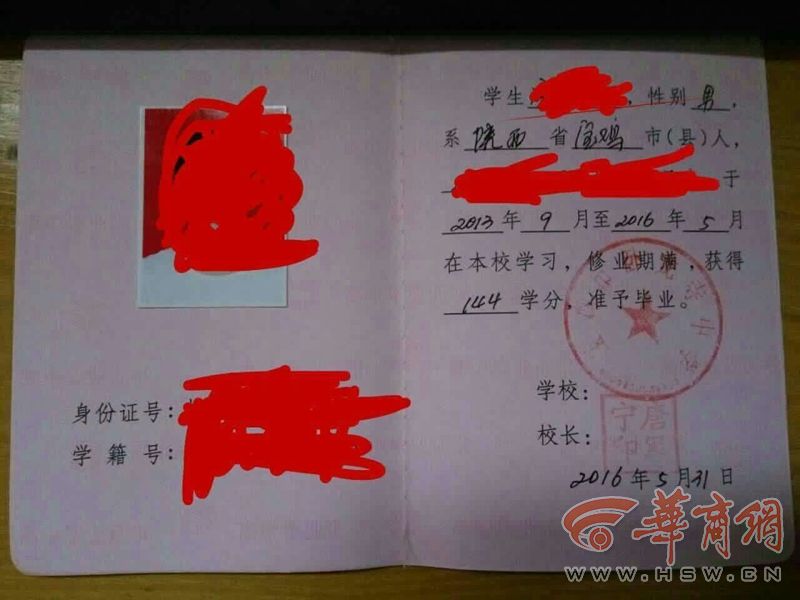 身份证号：
学籍号：
学生，性别男，
系陕西省宝鸡市（县）人，
于
2013年9月至2016年5月
在本校学习，修业期满，获得
144学分，准予毕业。
学校：
校长：
唐宁印
2016年5月31日
華商網
WWW.HSW.CN